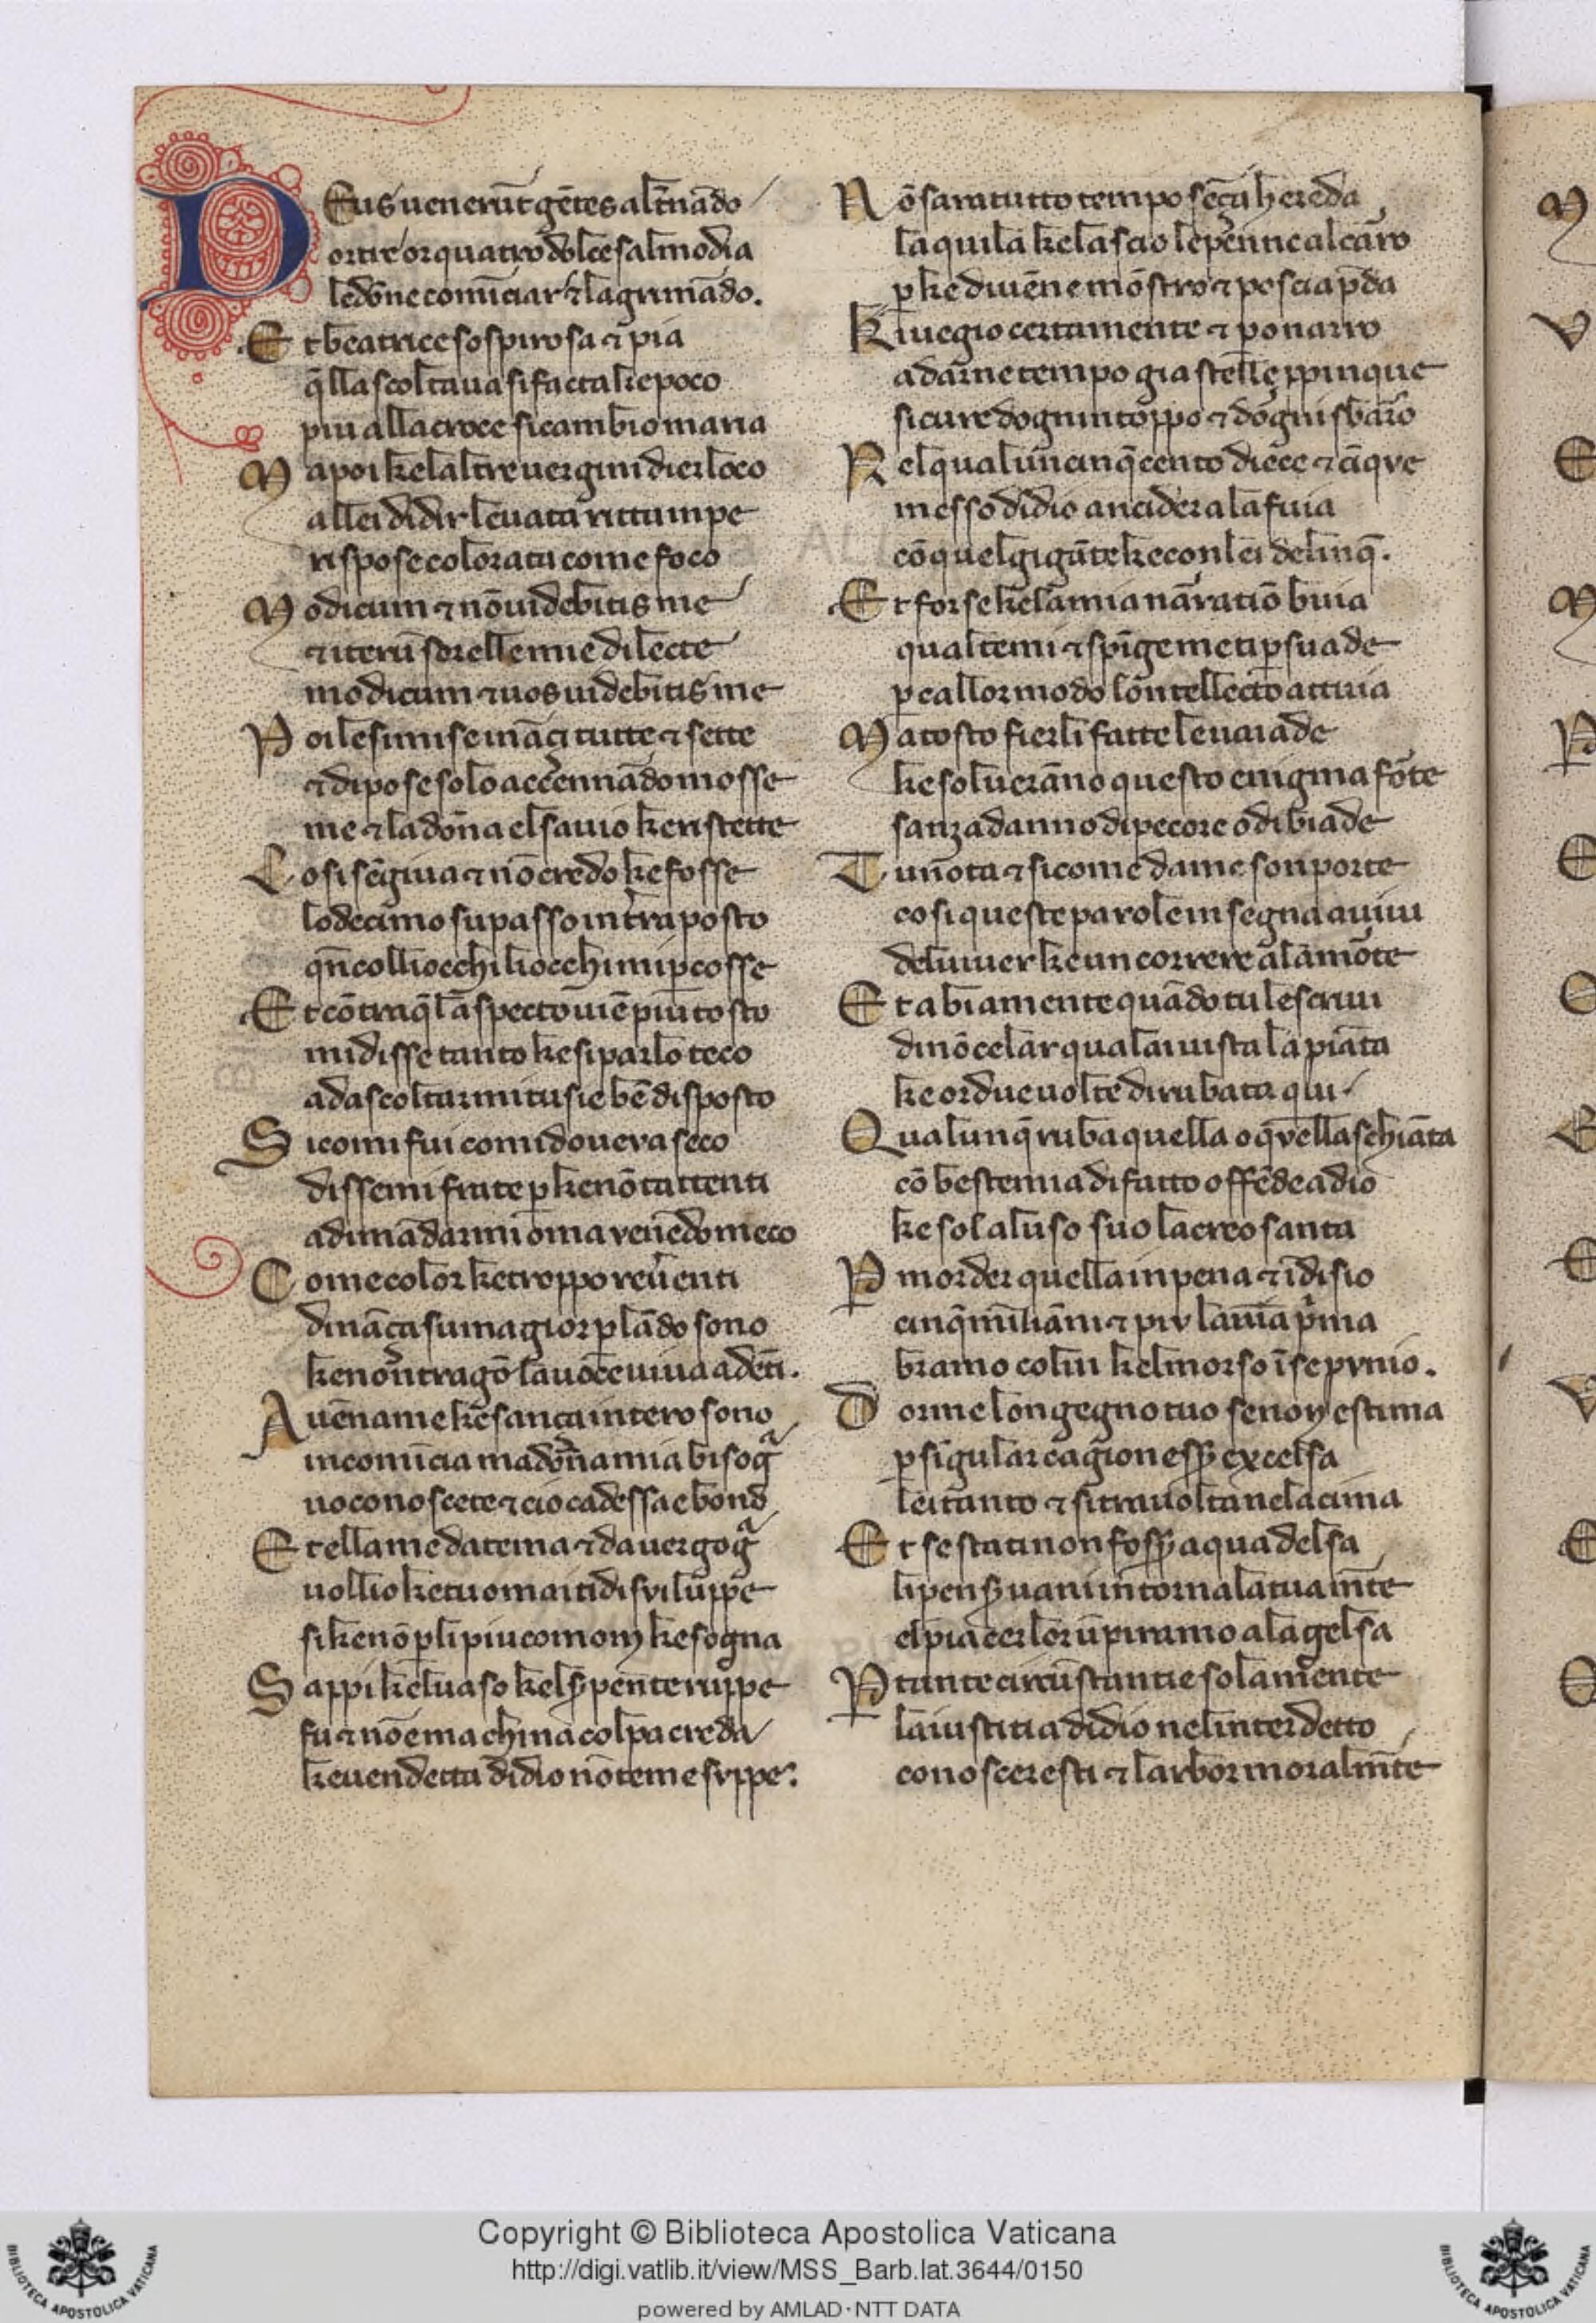 Eus uenerūt gētes alt̄nādo
or tre or quatro dolce salmodia
le dōne comīciar & lagrimādo.
Et beatrice sospirosa & pia
q̄lla scoltaua si facta ke poco
piu alla croce si cambio maria
Ma poi kel altre uergini dier loco
allei di dir leuata ritta inpe
rispose colorata come foco
Modicum & nō uidebitis me
& iterū sorelle mie dilecte
modicum & uos uidebitis me
Poi lesi mise ināçi tutte & sette
& dipo se solo accennādo mosse
me & la dōna el sauio ke ristette
Cosi sēgiua & nō credo ke fosse
lo decimo su passo in trā posto
qn̄ colliocchi liocchi mi ꝑcosse
Et cō tranq̄l aspecto uiē piu tosto
mi disse tanto ke si parlo teco
ad ascoltarmi tu sie bē disposto
Sicomi fui comi doueva seco
dissemi frate ꝑ ke nō tattenti
adimādarmi oma venēdo meco
Come color ke troppo reuerenti
dināçi suma gior ꝑlādo sono
ke non tragō la uoce uiua adēti.
Auēname ke sança intero sono
incomīcia madōna mia bisogᷓ
uo conoscete & cio cadessa e bono
Et ella me da tema & da uergogᷓ
uollio ke tu omai ti disviluppe
si ke nō ꝑli piu com om ke sogna
Sappi kel uaso kel ẜpente ruppe
fu & nō e ma chi nā colpa creda
ke uendetta di dio nō teme svppe:
Nō sara tutto tempo sēça hereda
laquila ke lascio le pēne al carro
ꝑ ke diuēne mōstro & poscia p̄da
Ki uegio certamente & ꝑo narro
adarne tempo gia stelle ꝓpinque
sicure dogni intoppo & dogni sbarro
Nel qual un cinq̄cento diece & cīqve
messo di dio ancidera la fuia
cō quel gigāte ke con lei delinq̄.
Et forse kela mia narratiō buia
qual temi & spīge me ti ꝑsuade
ꝑ ca llor modo lo ntellecto attuia
Ma tosto fier li fatte le naiade
ke solueranno questo enigma forte
sanza danno di pecore o di biade
Tu nota & si come da me son porte
cosi queste parole insegna auiui
del uiuer ke un correre ala morte
Et abi a mente quādo tu le scriui
di nō celar qual ai uista la piāta
ke or due uolte dirubata qui
Qualunq̄ ruba quella o qvella schiāta
cō bestemia di fatto offēde a dio
ke sol al uso suo la creo santa
P morder quella in pena & ī disio
cinq̄milianni & piv lanima p̄ma
bramo colui kel morso ī se pvnio.
Dorme lo ngegno tuo se non estima
ꝑ sīgular cagione eẜẜ excelsa
lei tanto & si trauolta nela cima
Et se stati non foẜẜ aqua delsa
li pensẜ uani intorna la tua mēte
el piacer lor un piramo ala gelsa
P tante circūstantie solamente
la iustitia di dio nel interdetto
conosceresti & larbor moralmēte
Copyright © Biblioteca Apostolica Vaticana
http://digi.vatlib.it/view/MSS_Barb.lat.3644/0150
powered by AMLAD·NTT DATA
BIBLIOTECA APOSTOLICA VATICANA
BIBLIOTECA APOSTOLICA VATICANA